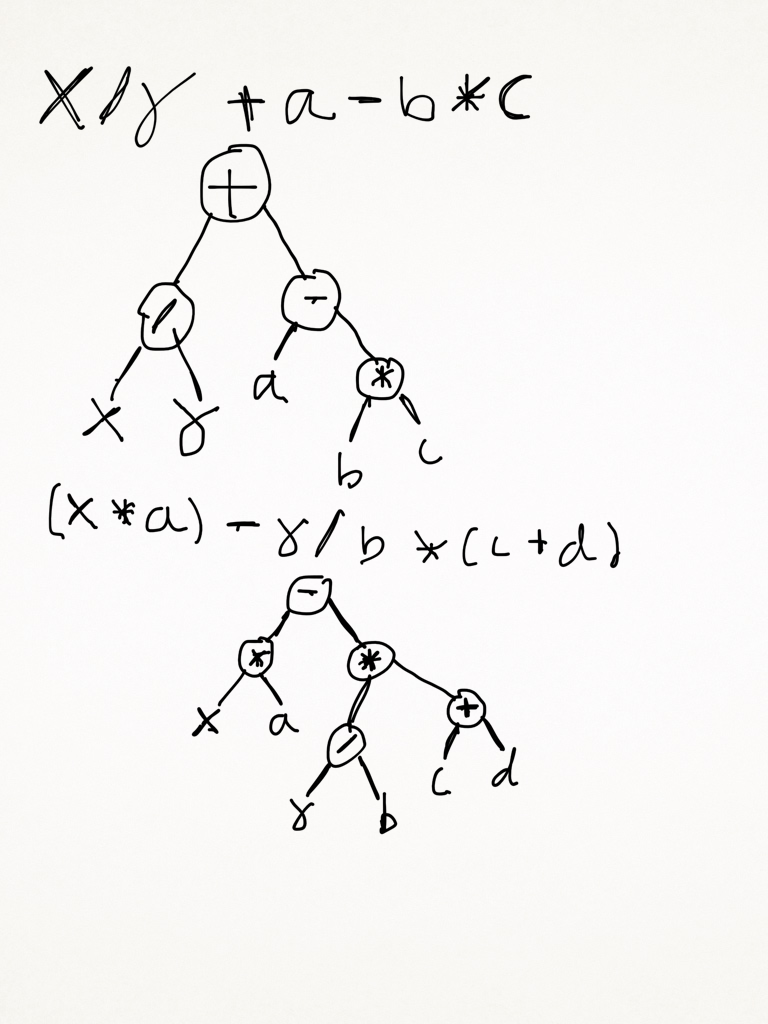 x/y + a - b * c
+
/ -
x y a *
b c
(x * a) - y / b * (c + d)
-
* *
x a / +
y b c d